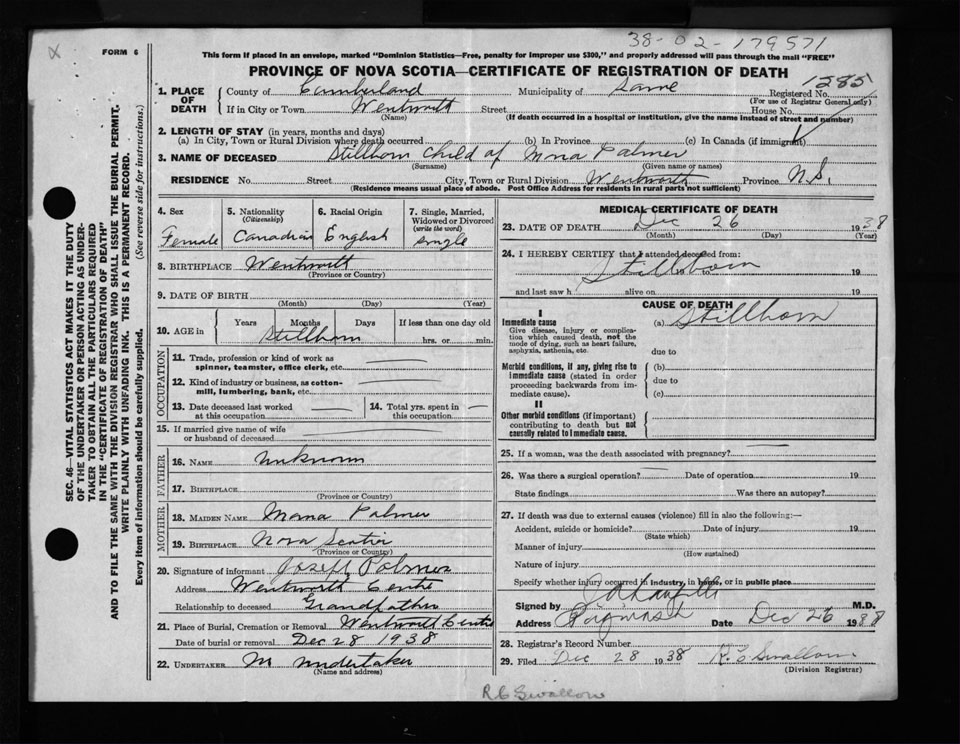 38-02-179571
FORM 6
This form if placed in an envelope, marked "Dominion Statistics—Free, penalty for improper use $300," and properly addressed will pass through the mail "FREE"
PROVINCE OF NOVA SCOTIA—CERTIFICATE OF REGISTRATION OF DEATH
1285
1. PLACE OF DEATH County of Cumberland Municipality of Same Registered No.
(For use of Registrar General only)
If in City or Town Wentworth Street House No.
(Name) (If death occurred in a hospital or institution, give the name instead of street and number)
2. LENGTH OF STAY (in years, months and days)
(a) In City, Town or Rural Division where death occurred (b) In Province (c) In Canada (if immigrant)
3. NAME OF DECEASED Stillborn Child of Mona Palmer
(Surname) (Given name or names)
RESIDENCE No. Street City, Town or Rural Division Wentworth Province N.S.
(Residence means usual place of abode. Post Office Address for residents in rural parts not sufficient)
SEC. 46—VITAL STATISTICS ACT MAKES IT THE DUTY
OF THE UNDERTAKER OR PERSON ACTING AS UNDER-
TAKER TO OBTAIN ALL THE PARTICULARS REQUIRED
IN THE "CERTIFICATE OF REGISTRATION OF DEATH"
AND TO FILE THE SAME WITH THE DIVISION REGISTRAR WHO SHALL ISSUE THE BURIAL PERMIT.
WRITE PLAINLY WITH UNFADING INK. THIS IS A PERMANENT RECORD.
Every item of information should be carefully supplied. (See reverse side for instructions.)
4. Sex 5. Nationality 6. Racial Origin 7. Single, Married,
(Citizenship) Widowed or Divorced
(write the word)
Female Canadian English single
8. BIRTHPLACE Wentworth
(Province or Country)
9. DATE OF BIRTH
(Month) (Day) (Year)
10. AGE in Years Months Days If less than one day old
Stillborn hrs. or min.
OCCUPATION
11. Trade, profession or kind of work as
spinner, teamster, office clerk, etc.
12. Kind of industry or business, as cotton-
mill, lumbering, bank, etc.
13. Date deceased last worked 14. Total yrs. spent in
at this occupation this occupation
15. If married give name of wife
or husband of deceased
FATHER
16. NAME unknown
17. BIRTHPLACE
(Province or Country)
MOTHER
18. MAIDEN NAME Mona Palmer
19. BIRTHPLACE Nova Scotia
(Province or Country)
20. Signature of informant Joseph Palmer
Address Wentworth Centre
Relationship to deceased Grandfather
21. Place of Burial, Cremation or Removal Wentworth Centre
Date of burial or removal Dec 28 1938
22. UNDERTAKER undertaker
(Name and address)
MEDICAL CERTIFICATE OF DEATH
23. DATE OF DEATH Dec 26 1938
(Month) (Day) (Year)
24. I HEREBY CERTIFY that I attended deceased from:
Stillborn to 19
and last saw h alive on 19
CAUSE OF DEATH
I
Immediate cause (a) Stillborn
Give disease, injury or complica-
tion which caused death, not the
mode of dying, such as heart failure,
asphyxia, asthenia, etc. due to
Morbid conditions, if any, giving rise to (b)
immediate cause (stated in order due to
proceeding backwards from im-
mediate cause). (c)
II
Other morbid conditions (if important)
contributing to death but not
causally related to immediate cause.
25. If a woman, was the death associated with pregnancy?
26. Was there a surgical operation? Date of operation 19
State findings Was there an autopsy?
27. If death was due to external causes (violence) fill in also the following:—
Accident, suicide or homicide? Date of injury 19
(State which)
Manner of injury
(How sustained)
Nature of injury
Specify whether injury occurred in industry, in home, or in public place
Signed by M.D.
Address Date Dec 26 1938
28. Registrar's Record Number
29. Filed Dec 28 1938 R C Swallow
(Division Registrar)
R C Swallow